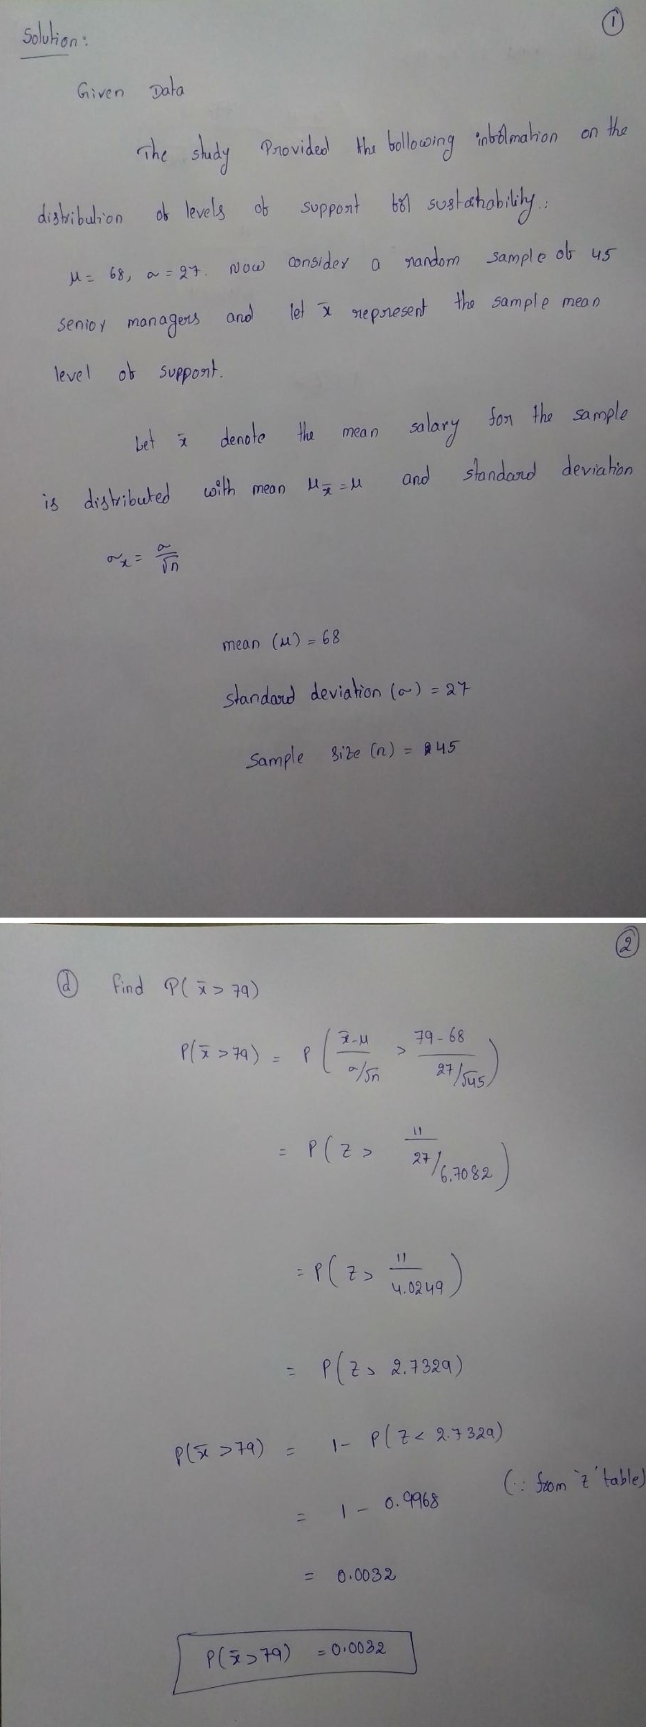 ①
Solution:
Given Data
The study Provided the bollowing inbolmation on the
distribution ob levels ob support bol sustahability:
μ = 68, σ = 27. Now consider a random sample ob 45
senior managers and let x̄ represent the sample mean
level ob support.
Let x̄ denote the mean salary for the sample
is distributed with mean μx̄ = μ and standard deviation
σx = σ/√n
mean (μ) = 68
standard deviation (σ) = 27
Sample size (n) = 45
②
ⓓ Find P(x̄ > 79)
P(x̄ > 79) = P( (x̄-μ)/(σ/√n) > (79-68)/(27/√45) )
= P( Z > 11/(27/6.7082) )
= P( Z > 11/4.0249 )
= P( Z > 2.7329)
P(x̄ > 79) = 1 - P( Z < 2.7329)
= 1 - 0.9968 (∵ from 'z' table)
= 0.0032
P(x̄ > 79) = 0.0032